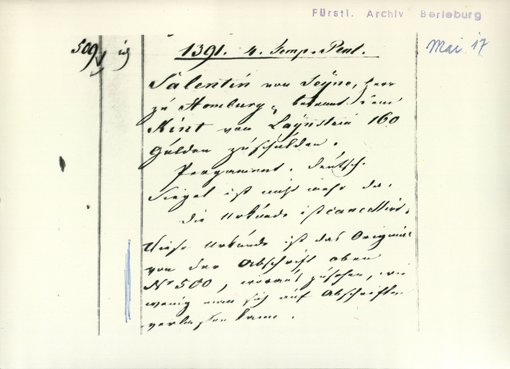 Fürstl. Archiv Berleburg
Mai 17
509
1391. 4. Temp. Pent.
Salentin von Seyne, Herr
zu Homburg, bekennt dem
Kint von Laynstein 160
Gulden zu schulden.
Pergament. deutsch.
Siegel ist nicht mehr da.
die Urkunde ist cancellirt.
Diese Urkunde ist das Original
von der Abschrift oben
No 500, woraus zu sehen, wie
wenig man sich auf Abschriften
verlassen kann.